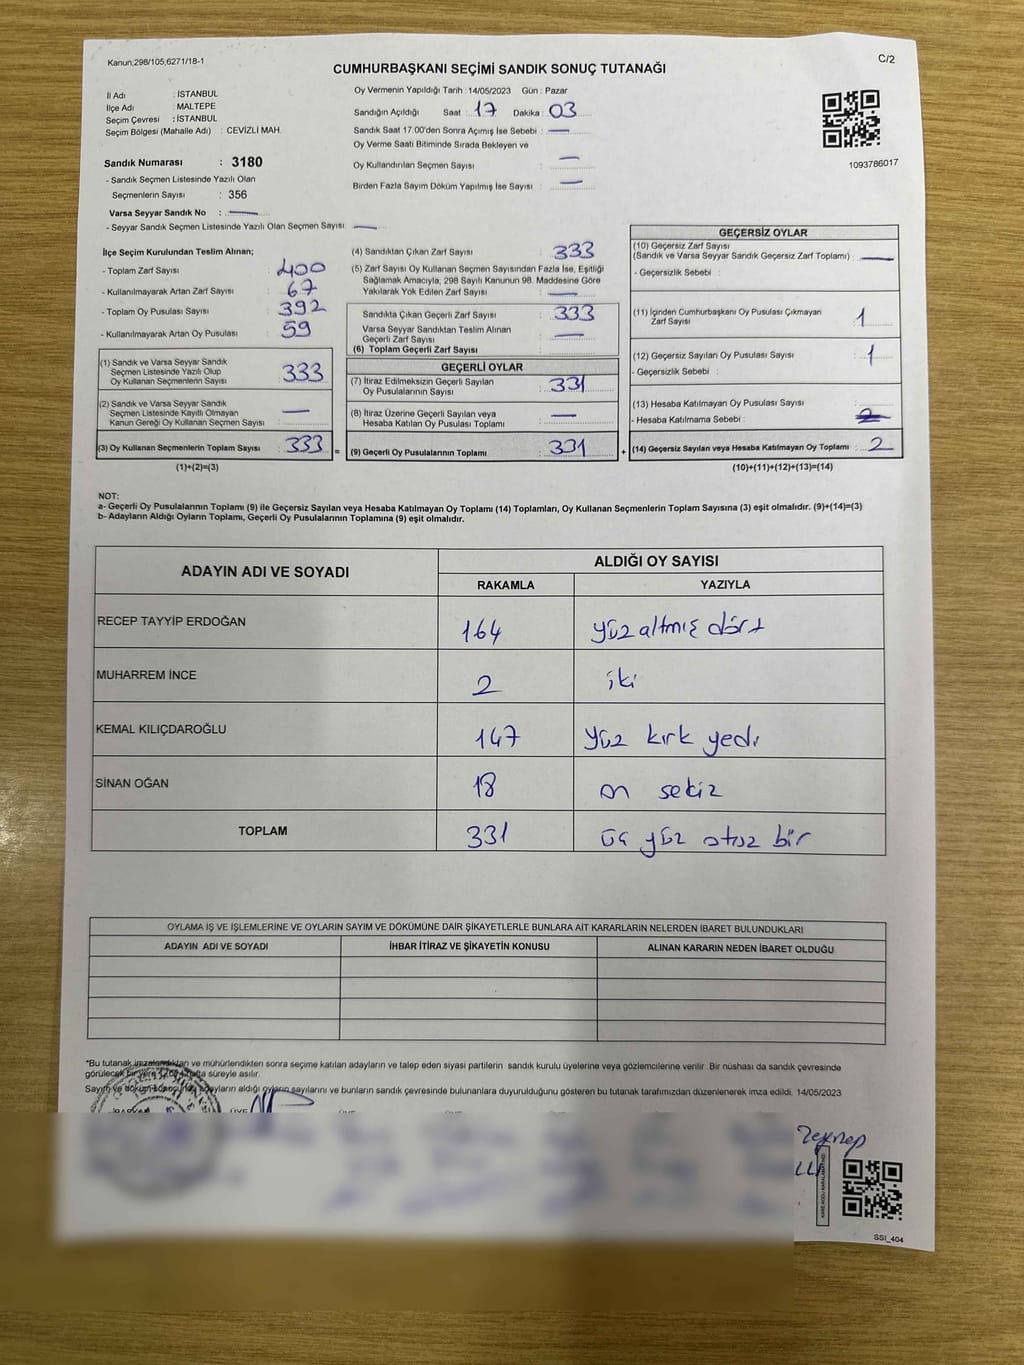 Kanun,298/105,6271/18-1
C/2
CUMHURBAŞKANI SEÇİMİ SANDIK SONUÇ TUTANAĞI
İl Adı : İSTANBUL
İlçe Adı : MALTEPE
Seçim Çevresi : İSTANBUL
Seçim Bölgesi (Mahalle Adı) : CEVİZLİ MAH.
Sandık Numarası : 3180
- Sandık Seçmen Listesinde Yazılı Olan
Seçmenlerin Sayısı : 356
Varsa Seyyar Sandık No : —
- Seyyar Sandık Seçmen Listesinde Yazılı Olan Seçmen Sayısı : —
Oy Vermenin Yapıldığı Tarih : 14/05/2023 Gün : Pazar
Sandığın Açıldığı Saat : 17 Dakika : 03
Sandık Saat 17:00'den Sonra Açımış İse Sebebi : —
Oy Verme Saati Bitiminde Sırada Bekleyen ve
Oy Kullandırılan Seçmen Sayısı : —
Birden Fazla Sayım Döküm Yapılmış İse Sayısı : —
1093786017
İlçe Seçim Kurulundan Teslim Alınan;
- Toplam Zarf Sayısı : 400
- Kullanılmayarak Artan Zarf Sayısı : 67
- Toplam Oy Pusulası Sayısı : 392
- Kullanılmayarak Artan Oy Pusulası : 59
(1) Sandık ve Varsa Seyyar Sandık
Seçmen Listesinde Yazılı Olup
Oy Kullanan Seçmenlerin Sayısı : 333
(2) Sandık ve Varsa Seyyar Sandık
Seçmen Listesinde Kayıtlı Olmayan
Kanun Gereği Oy Kullanan Seçmen Sayısı : —
(3) Oy Kullanan Seçmenlerin Toplam Sayısı : 333 =
(1)+(2)=(3)
(4) Sandıktan Çıkan Zarf Sayısı : 333
(5) Zarf Sayısı Oy Kullanan Seçmen Sayısından Fazla İse, Eşitliği
Sağlamak Amacıyla, 298 Sayılı Kanunun 98. Maddesine Göre
Yakılarak Yok Edilen Zarf Sayısı : —
Sandıkta Çıkan Geçerli Zarf Sayısı : 333
Varsa Seyyar Sandıktan Teslim Alınan
Geçerli Zarf Sayısı : —
(6) Toplam Geçerli Zarf Sayısı :
GEÇERLİ OYLAR
(7) İtiraz Edilmeksizin Geçerli Sayılan
Oy Pusulalarının Sayısı : 331
(8) İtiraz Üzerine Geçerli Sayılan veya
Hesaba Katılan Oy Pusulası Toplamı : —
(9) Geçerli Oy Pusulalarının Toplamı : 331 +
GEÇERSİZ OYLAR
(10) Geçersiz Zarf Sayısı
(Sandık ve Varsa Seyyar Sandık Geçersiz Zarf Toplamı) : —
- Geçersizlik Sebebi :
(11) İçinden Cumhurbaşkanı Oy Pusulası Çıkmayan
Zarf Sayısı : 1
(12) Geçersiz Sayılan Oy Pusulası Sayısı : 1
- Geçersizlik Sebebi :
(13) Hesaba Katılmayan Oy Pusulası Sayısı :
- Hesaba Katılmama Sebebi :
(14) Geçersiz Sayılan veya Hesaba Katılmayan Oy Toplamı : 2
(10)+(11)+(12)+(13)=(14)
NOT:
a- Geçerli Oy Pusulalarının Toplamı (9) ile Geçersiz Sayılan veya Hesaba Katılmayan Oy Toplamı (14) Toplamları, Oy Kullanan Seçmenlerin Toplam Sayısına (3) eşit olmalıdır. (9)+(14)=(3)
b- Adayların Aldığı Oyların Toplamı, Geçerli Oy Pusulalarının Toplamına (9) eşit olmalıdır.
ADAYIN ADI VE SOYADI ALDIĞI OY SAYISI
RAKAMLA YAZIYLA
RECEP TAYYİP ERDOĞAN 164 yüz altmış dört
MUHARREM İNCE 2 iki
KEMAL KILIÇDAROĞLU 147 yüz kırk yedi
SİNAN OĞAN 18 on sekiz
TOPLAM 331 üç yüz otuz bir
OYLAMA İŞ VE İŞLEMLERİNE VE OYLARIN SAYIM VE DÖKÜMÜNE DAİR ŞİKAYETLERLE BUNLARA AİT KARARLARIN NELERDEN İBARET BULUNDUKLARI
ADAYIN ADI VE SOYADI İHBAR İTİRAZ VE ŞİKAYETİN KONUSU ALINAN KARARIN NEDEN İBARET OLDUĞU
*Bu tutanak imzalandıktan ve mühürlendikten sonra seçime katılan adayların ve talep eden siyasi partilerin sandık kurulu üyelerine veya gözlemcilerine verilir. Bir nüshası da sandık çevresinde
görülecek bir yere hafta süreyle asılır.
Sayım ve döküm sonucu adayların aldığı oyların sayılarını ve bunların sandık çevresinde bulunanlara duyurulduğunu gösteren bu tutanak tarafımızdan düzenlenerek imza edildi. 14/05/2023
Zeynep
SSI_404